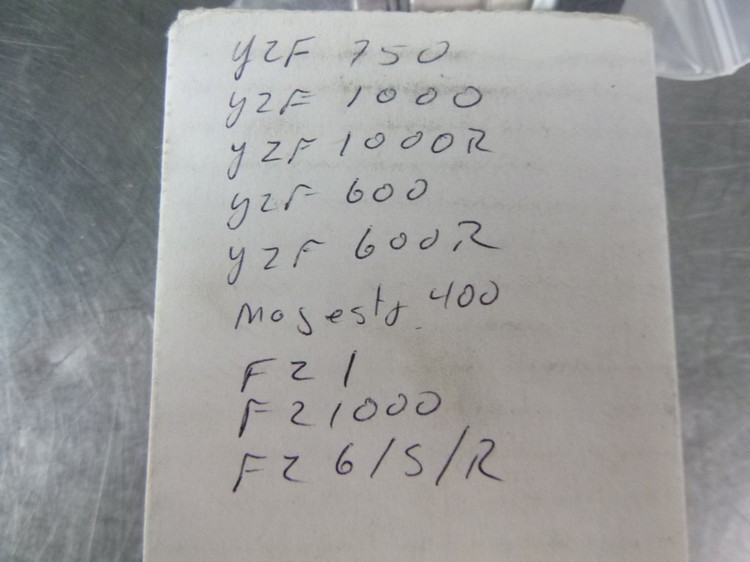 YZF 750
YZF 1000
YZF 1000R
YZF 600
YZF 600R
Majesty 400
FZ 1
FZ 1000
FZ 6/S/R